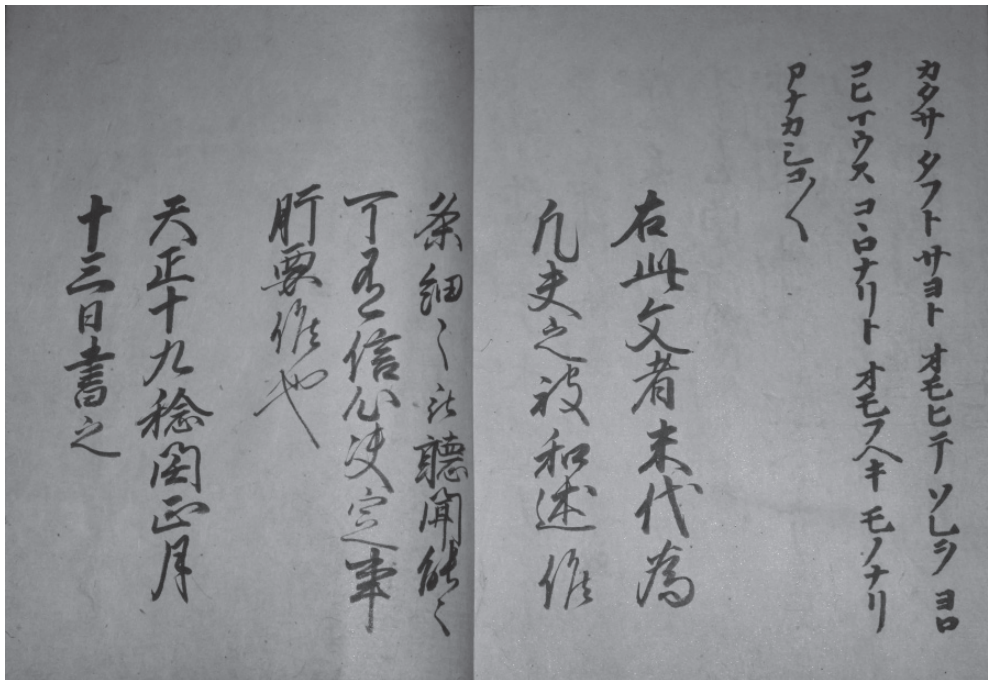 カタサ タフトサヨト オモヒテ ソレヲ ヨロ
コヒイウス コヽロナリト オモフヘキ モノナリ
アナカシコ〱
右此文者末代為
凡夫之被和述候
条細〻被聴聞能〻
可有信心決定事
肝要候也
天正十九稔閏正月
十三日書之